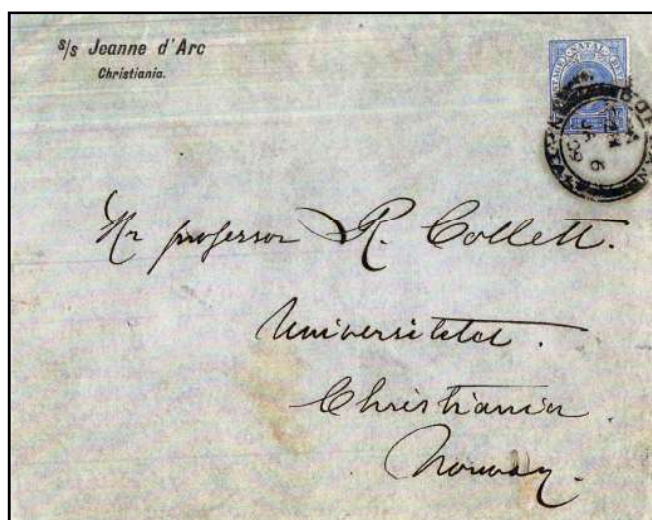 s/s Jeanne d'Arc
Christiania.
NATAL
Hr professor R. Collett.
Universitetet.
Christiania
Norway.